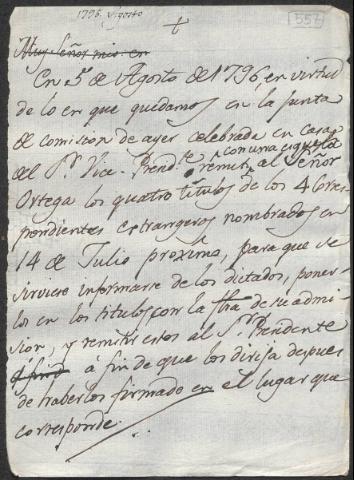 1796. Agosto
557
+
Muy Señor mio en
En 5 de Agosto de 1796, en virtud
de lo en que quedamos en la junta
de comision de ayer celebrada en casa
del Sr. Vice-Presid.te remití al Señor
con una esquela
Ortega los quatro titulos de los 4 Corres
pondientes estrangeros nombrados en
14 de Julio proximo, para que se
sirviese informarse de los dictados, poner
los en los titulos con la fha de su admi
sion, y remitir estos al Sr. Presidente
á fin de que los dirija despues
de haberlos firmado en el lugar que
corresponde.